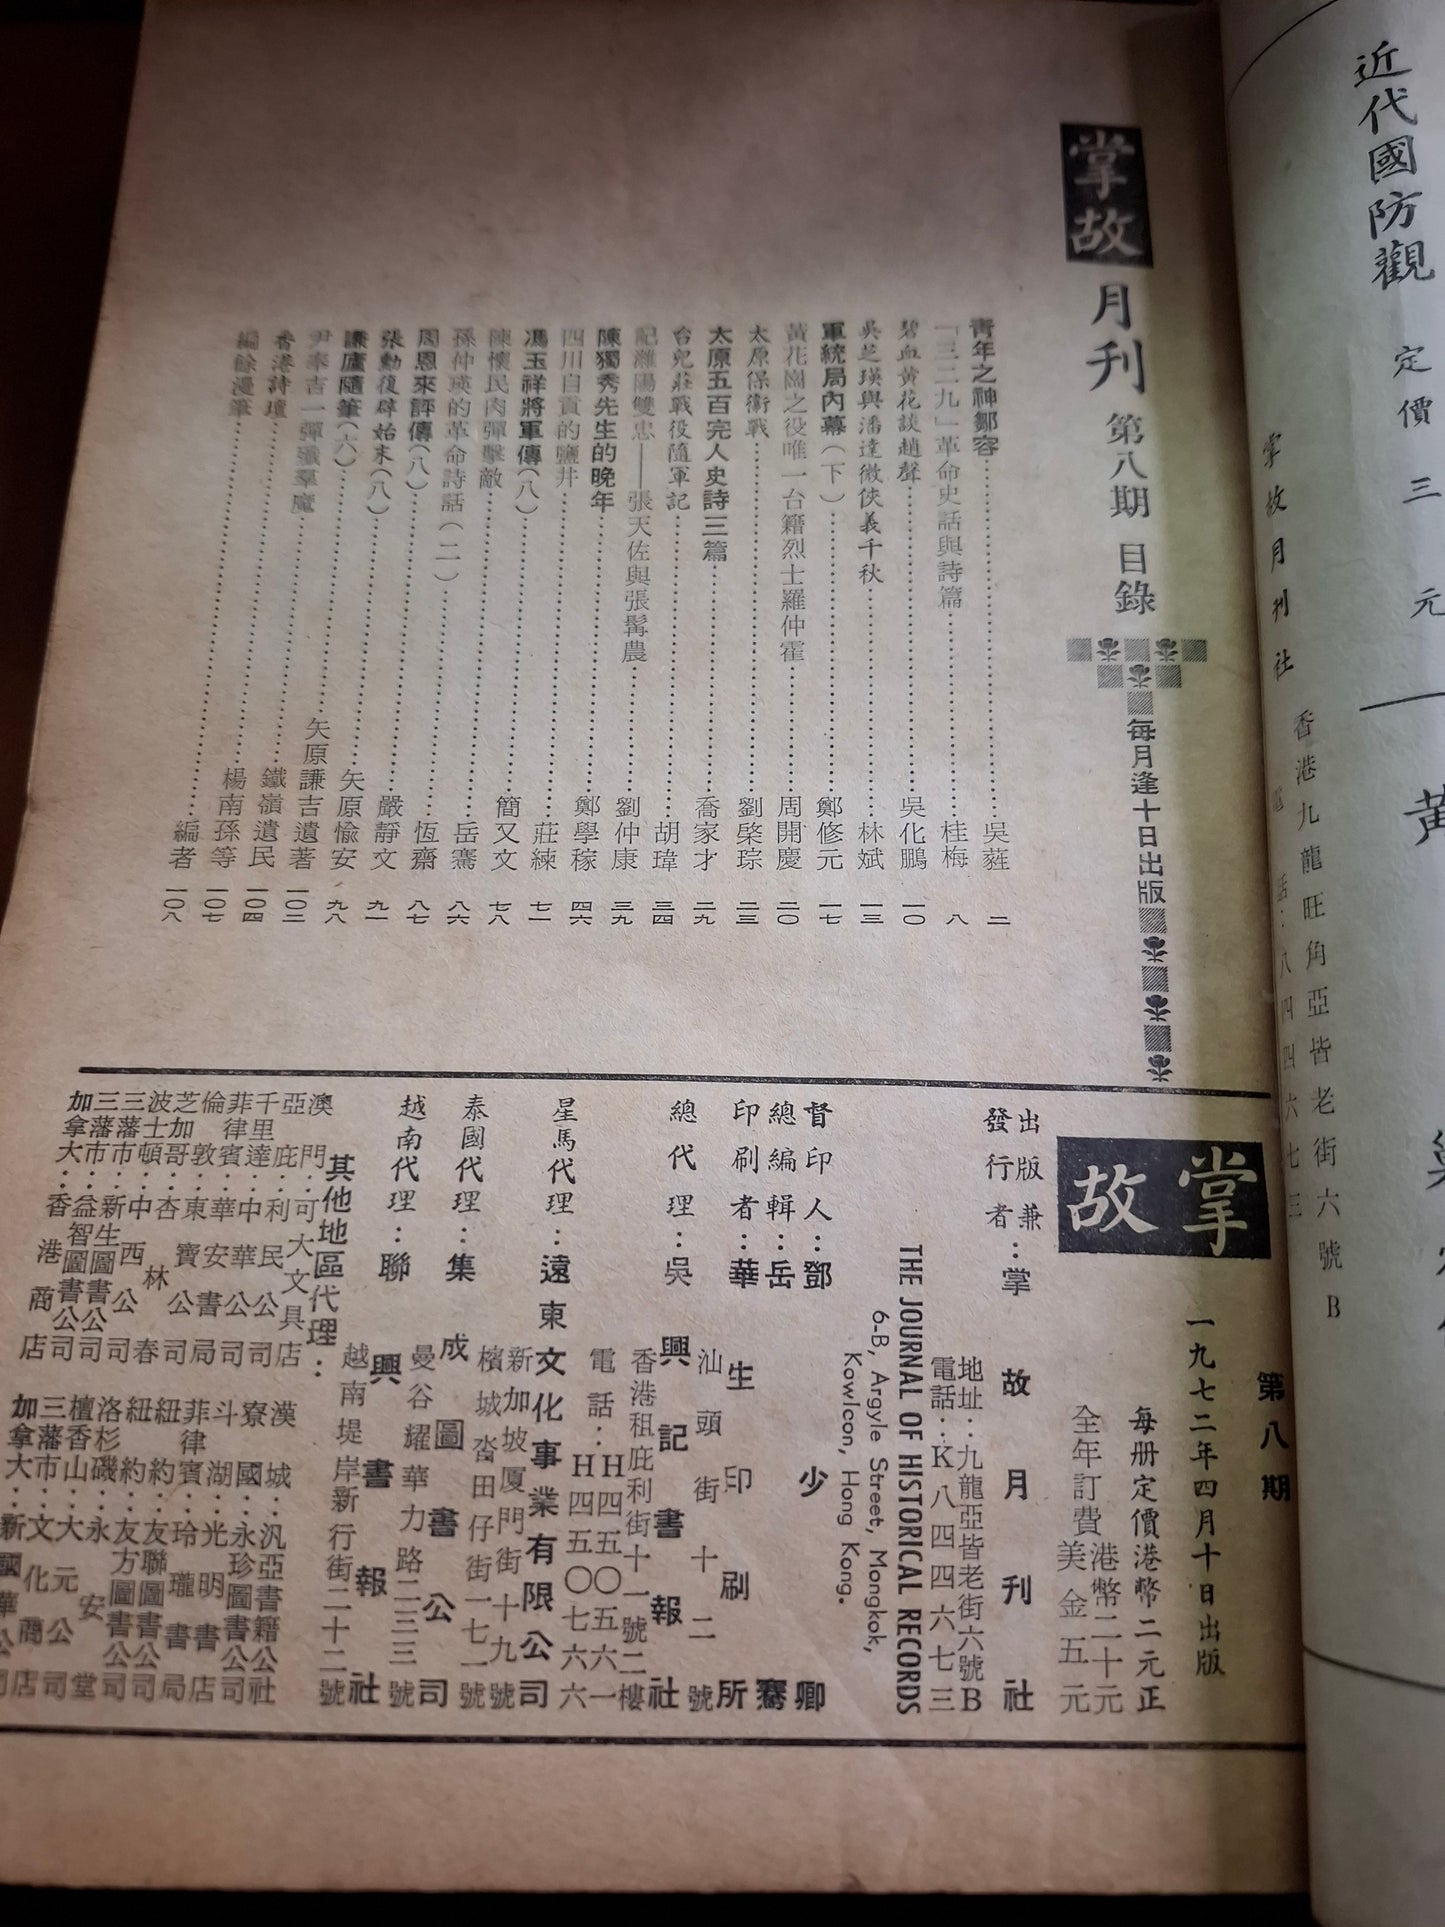 掌故月刊 第八期 目錄 每月逢十日出版
青年之神鄒容 吳蕤 二
「三二九」革命史話與詩篇 桂梅 八
碧血黃花談趙聲 吳化鵬 一〇
吳芝瑛與潘達微俠義千秋 林斌 一三
軍統局內幕(下) 鄭修元 一七
黃花崗之役唯一台籍烈士羅仲霍 周開慶 二〇
太原保衛戰 劉棨琮 二三
太原五百完人史詩三篇 喬家才 二九
台兒莊戰役隨軍記 胡瑋 三四
記濰陽雙忠——張天佐與張髯農 劉仲康 三九
陳獨秀先生的晚年 鄭學稼 四六
四川自貢的鹽井 莊練 七一
馮玉祥將軍傳(八) 簡又文 七八
陳懷民肉彈擊敵 岳騫 八六
孫仲瑛的革命詩話(二) 恆齋 八七
周恩來評傳(八) 嚴靜文 九一
張勳復辟始末(八) 矢原愉安 九八
謙廬隨筆(六) 矢原謙吉遺著 一〇二
尹奉吉一彈殲羣魔 鐵嶺遺民 一〇四
香港詩壇 楊南孫等 一〇七
編餘漫筆 編者 一〇八
掌故
第八期
一九七二年四月十日出版
每册定價港幣二元正
全年訂費 港幣二十元
美金五元
出版兼發行者:掌故月刊社
地址:九龍亞皆老街六號B
電話:K八四四六七三
THE JOURNAL OF HISTORICAL RECORDS
6-B, Argyle Street, Mongkok,
Kowlcon, Hong Kong.
督印人:鄧少卿
總編輯:岳騫
印刷者:華生印刷所
汕頭街十二號
總代理:吳興記書報社
香港租庇利街十一號二樓
電話:H四五〇五六一
H四五〇七六六
星馬代理:遠東文化事業有限公司
新加坡厦門街十九號
檳城沓田仔街一七一號
泰國代理:集成圖書公司
曼谷耀華力路二三三號
越南代理:聯興書報社
越南堤岸新行街二十二號
其他地區代理:
澳門:可大文具店
亞庇:利民公司
千里達:中華公司
菲律賓:華安公司
倫敦:東寶書局
芝加哥:杏林公司
波士頓:中西春
三藩市:新生圖書公司
三藩市:益智圖書公司
加拿大:香港商店
漢城:汎亞書籍公社
寮國:永珍圖書公司
斗湖:光明書店
菲律賓:玲瓏書局
紐約:友聯圖書公司
紐約:友方圖書公司
洛杉磯:永安堂
檀香山:大元公司
三藩市:文化商店
加拿大:新國華公司
近代國防觀 定價三元
掌故月刊社
香港九龍旺角亞皆老街六號B
電話:八四四六七三